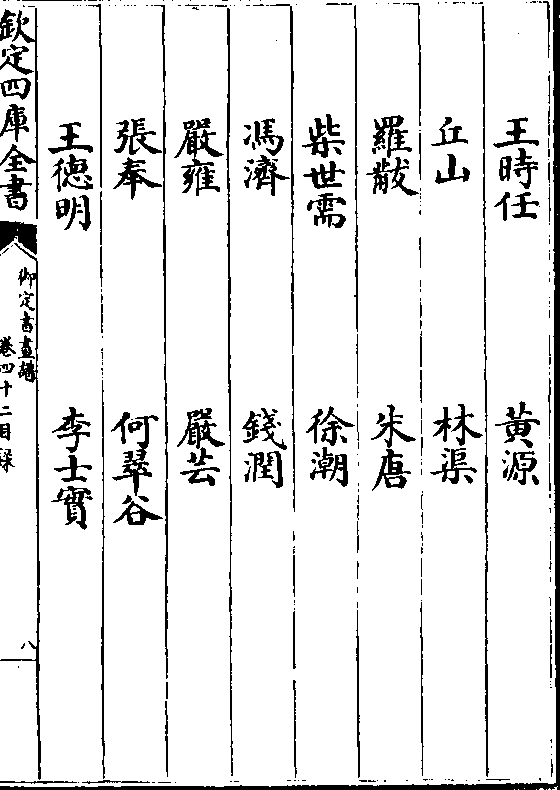 王時任　黃源
丘山　林渠
羅黻　朱唐
柴世需　徐潮
馮濟　錢潤
嚴雍　嚴芸
張奉　何翠谷
王德明　李士實
欽定四庫全書
御定書畫譜
卷四十二目錄
八